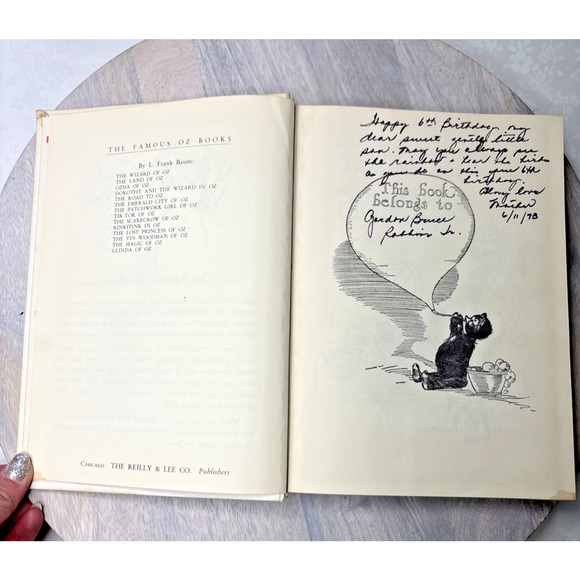 THE FAMOUS OZ BOOKS
By L. Frank Baum:
THE WIZARD OF OZ
THE LAND OF OZ
OZMA OF OZ
DOROTHY AND THE WIZARD IN OZ
THE ROAD TO OZ
THE EMERALD CITY OF OZ
THE PATCHWORK GIRL OF OZ
TIK TOK OF OZ
THE SCARECROW OF OZ
RINKITINK IN OZ
THE LOST PRINCESS OF OZ
THE TIN WOODMAN OF OZ
THE MAGIC OF OZ
GLINDA OF OZ
CHICAGO THE REILLY & LEE CO. Publishers
Happy 6th Birthday, my
dear sweet gentle little
son. May you always see
the rainbow & hear the birds
as you do on this your 6th
birthday.
love
6/11/73
This book
belongs to
Gordon Bruce
Robbins Jr.